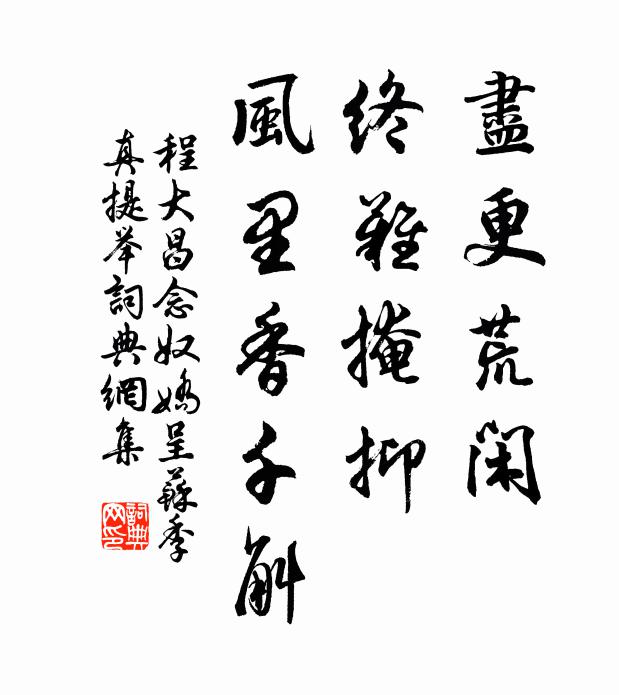 盡更荒閑
終難掩抑
風里香千斛
程大昌念奴嬌呈蘇季
真提举詞典網集
詞典网印